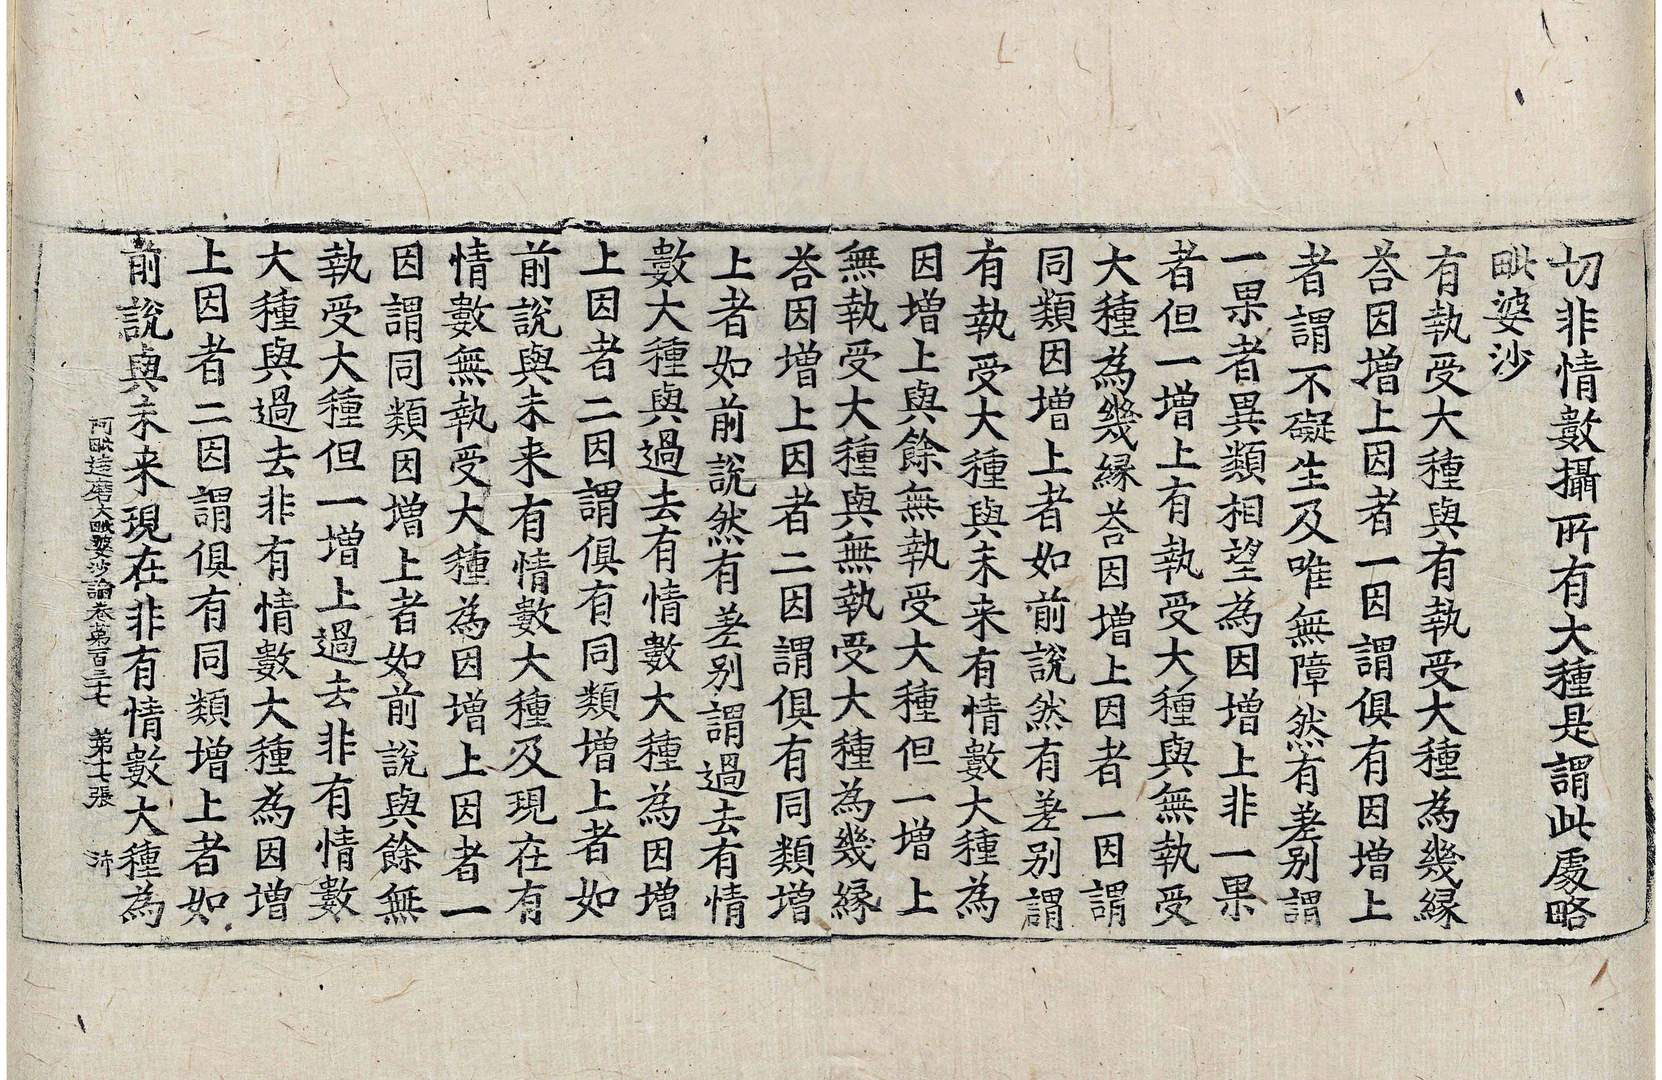 切非情數攝所有大種是謂此處略
毗婆沙
有執受大種與有執受大種為幾緣
荅因增上因者一因謂俱有因增上
者謂不礙生及唯無障然有差別謂
一果者異類相望為因增上非一果
者但一增上有執受大種與無執受
大種為幾緣荅因增上因者一因謂
同類因增上者如前說然有差別謂
有執受大種與未来有情數大種為
因增上與餘無執受大種但一增上
無執受大種與無執受大種為幾緣
荅因增上因者二因謂俱有同類增
上者如前說然有差別謂過去有情
數大種與過去有情數大種為因增
上因者二因謂俱有同類增上者如
前說與未来有情數大種及現在有
情數無執受大種為因增上因者一
因謂同類因增上者如前說與餘無
執受大種但一增上過去非有情數
大種與過去非有情數大種為因增
上因者二因謂俱有同類增上者如
前說與未来現在非有情數大種為
阿毗達磨大毗婆沙論卷苐百三七 苐十七張 沛